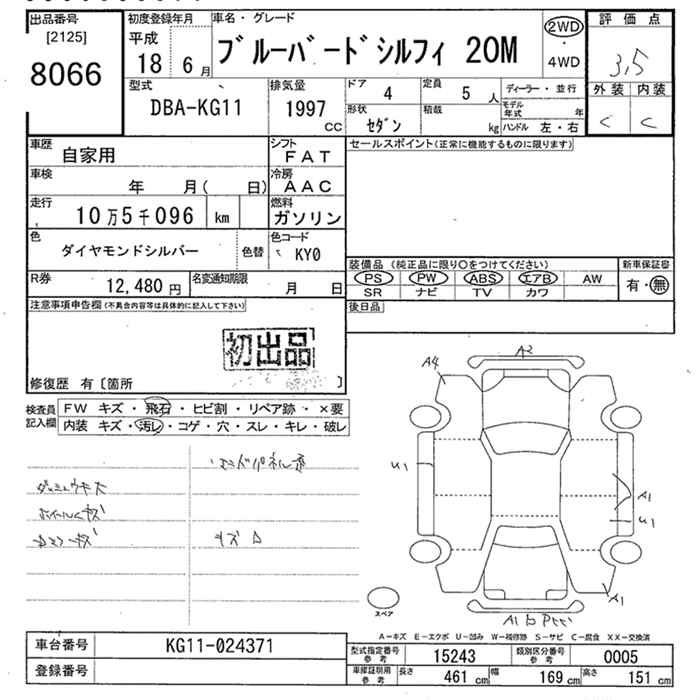 出品番号
[2125]
8066
初度登録年月
平成
18 6 月
車名・グレード
ブルーバードシルフィ 20M
2WD
・
4WD
評価点
3.5
外装 内装
C C
型式
DBA-KG11
排気量
1997
CC
ドア
4
定員
5 人
ディーラー・並行
形状
セダン
積載
kg
モデル年式 年
ハンドル 左・右
車歴
自家用
シフト
FAT
セールスポイント(正常に機能するものに限ります)
車検
年 月( 日)
冷房
AAC
走行
10万5千096 km
燃料
ガソリン
色
ダイヤモンドシルバー
色替
色コード
KY0
装備品(純正品に限り○をつけてください)
新車保証書
PS PW ABS エアB AW
有・無
SR ナビ TV カワ
R券
12,480 円
名変通知期限
月 日
後日品
注意事項申告欄(不具合内容等は具体的に記入して下さい)
初出品
修復歴 有〔箇所 〕
検査員記入欄
FW キズ・飛石・ヒビ割・リペア跡・×要
内装 キズ・汚レ・コゲ・穴・スレ・キレ・破レ
A2
A4
U1
A1
U1
A1
スペア
A-キズ E-エクボ U-凹み W-補修跡 S-サビ C-腐食 XX-交換済
車台番号
KG11-024371
登録番号
型式指定番号
参考
15243
類別区分番号
参考
0005
車庫証明用
参考
長さ
461 cm
幅
169 cm
高さ
151 cm